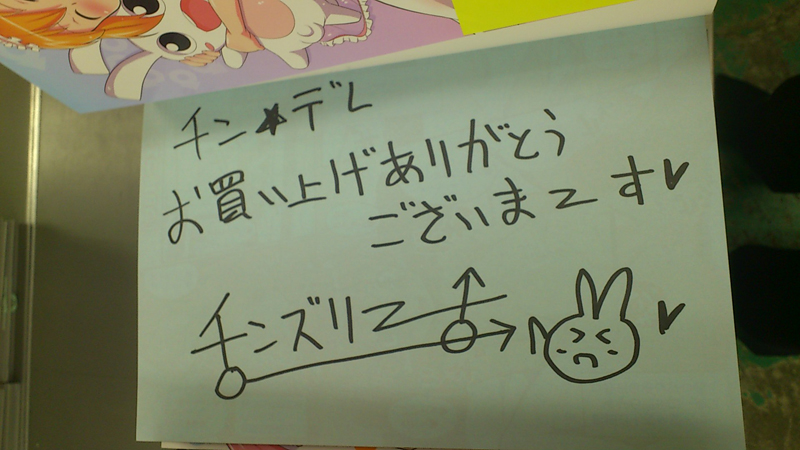 チン★デレ
お買い上げありがとう
ございま〜す♥
チンズリ〜